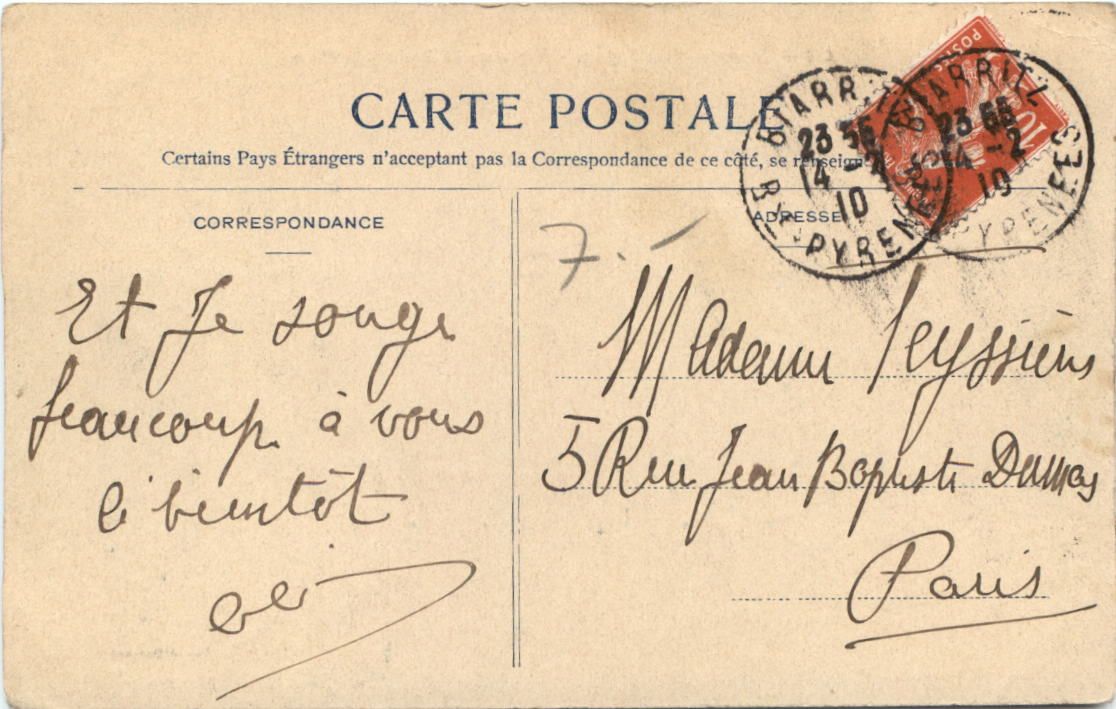 CARTE POSTALE
Certains Pays Étrangers n'acceptant pas la Correspondance de ce côté, se renseigner
CORRESPONDANCE
ADRESSE
BIARRITZ
23 55
14 - 2
10
BSES PYRENEES
BIARRITZ
23 55
14 - 2
10
PYRENEES
POSTES
10
7.
Et Je songe
beaucoup à vous
à bientôt
Madame Teyssière
5 Rue Jean Baptiste Dumas
Paris